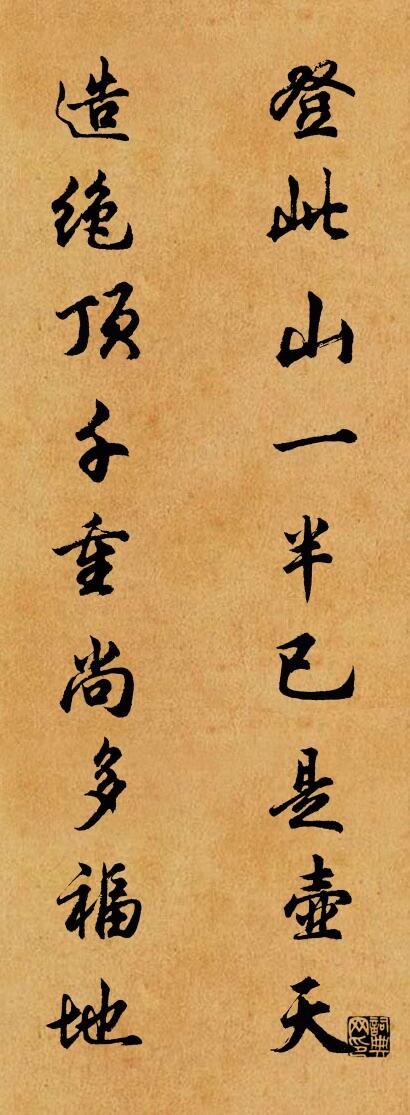 登此山一半已是壺天
造绝顶千重尚多福地
詞典网印